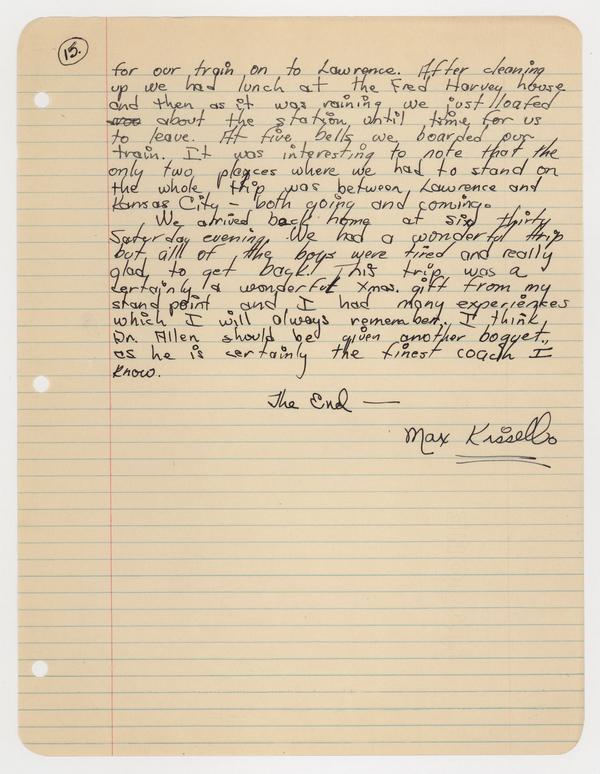 15.
for our train on to Lawrence. After cleaning
up we had lunch at the Fred Harvey house
and then as it was raining we just loafed
about the station until time for us
to leave. At five bells we boarded our
train. It was interesting to note that the
only two places where we had to stand on
the whole trip was between Lawrence and
Kansas City - both going and coming.
We arrived back home at six thirty
Saturday evening. We had a wonderful trip
but all of the boys were tired and really
glad to get back! This trip was a
certainly a wonderful Xmas. gift from my
stand point and I had many experiences
which I will always remember. I think
Dr. Allen should be given another boquet,
as he is certainly the finest coach I
know.
The End —
Max Kissell